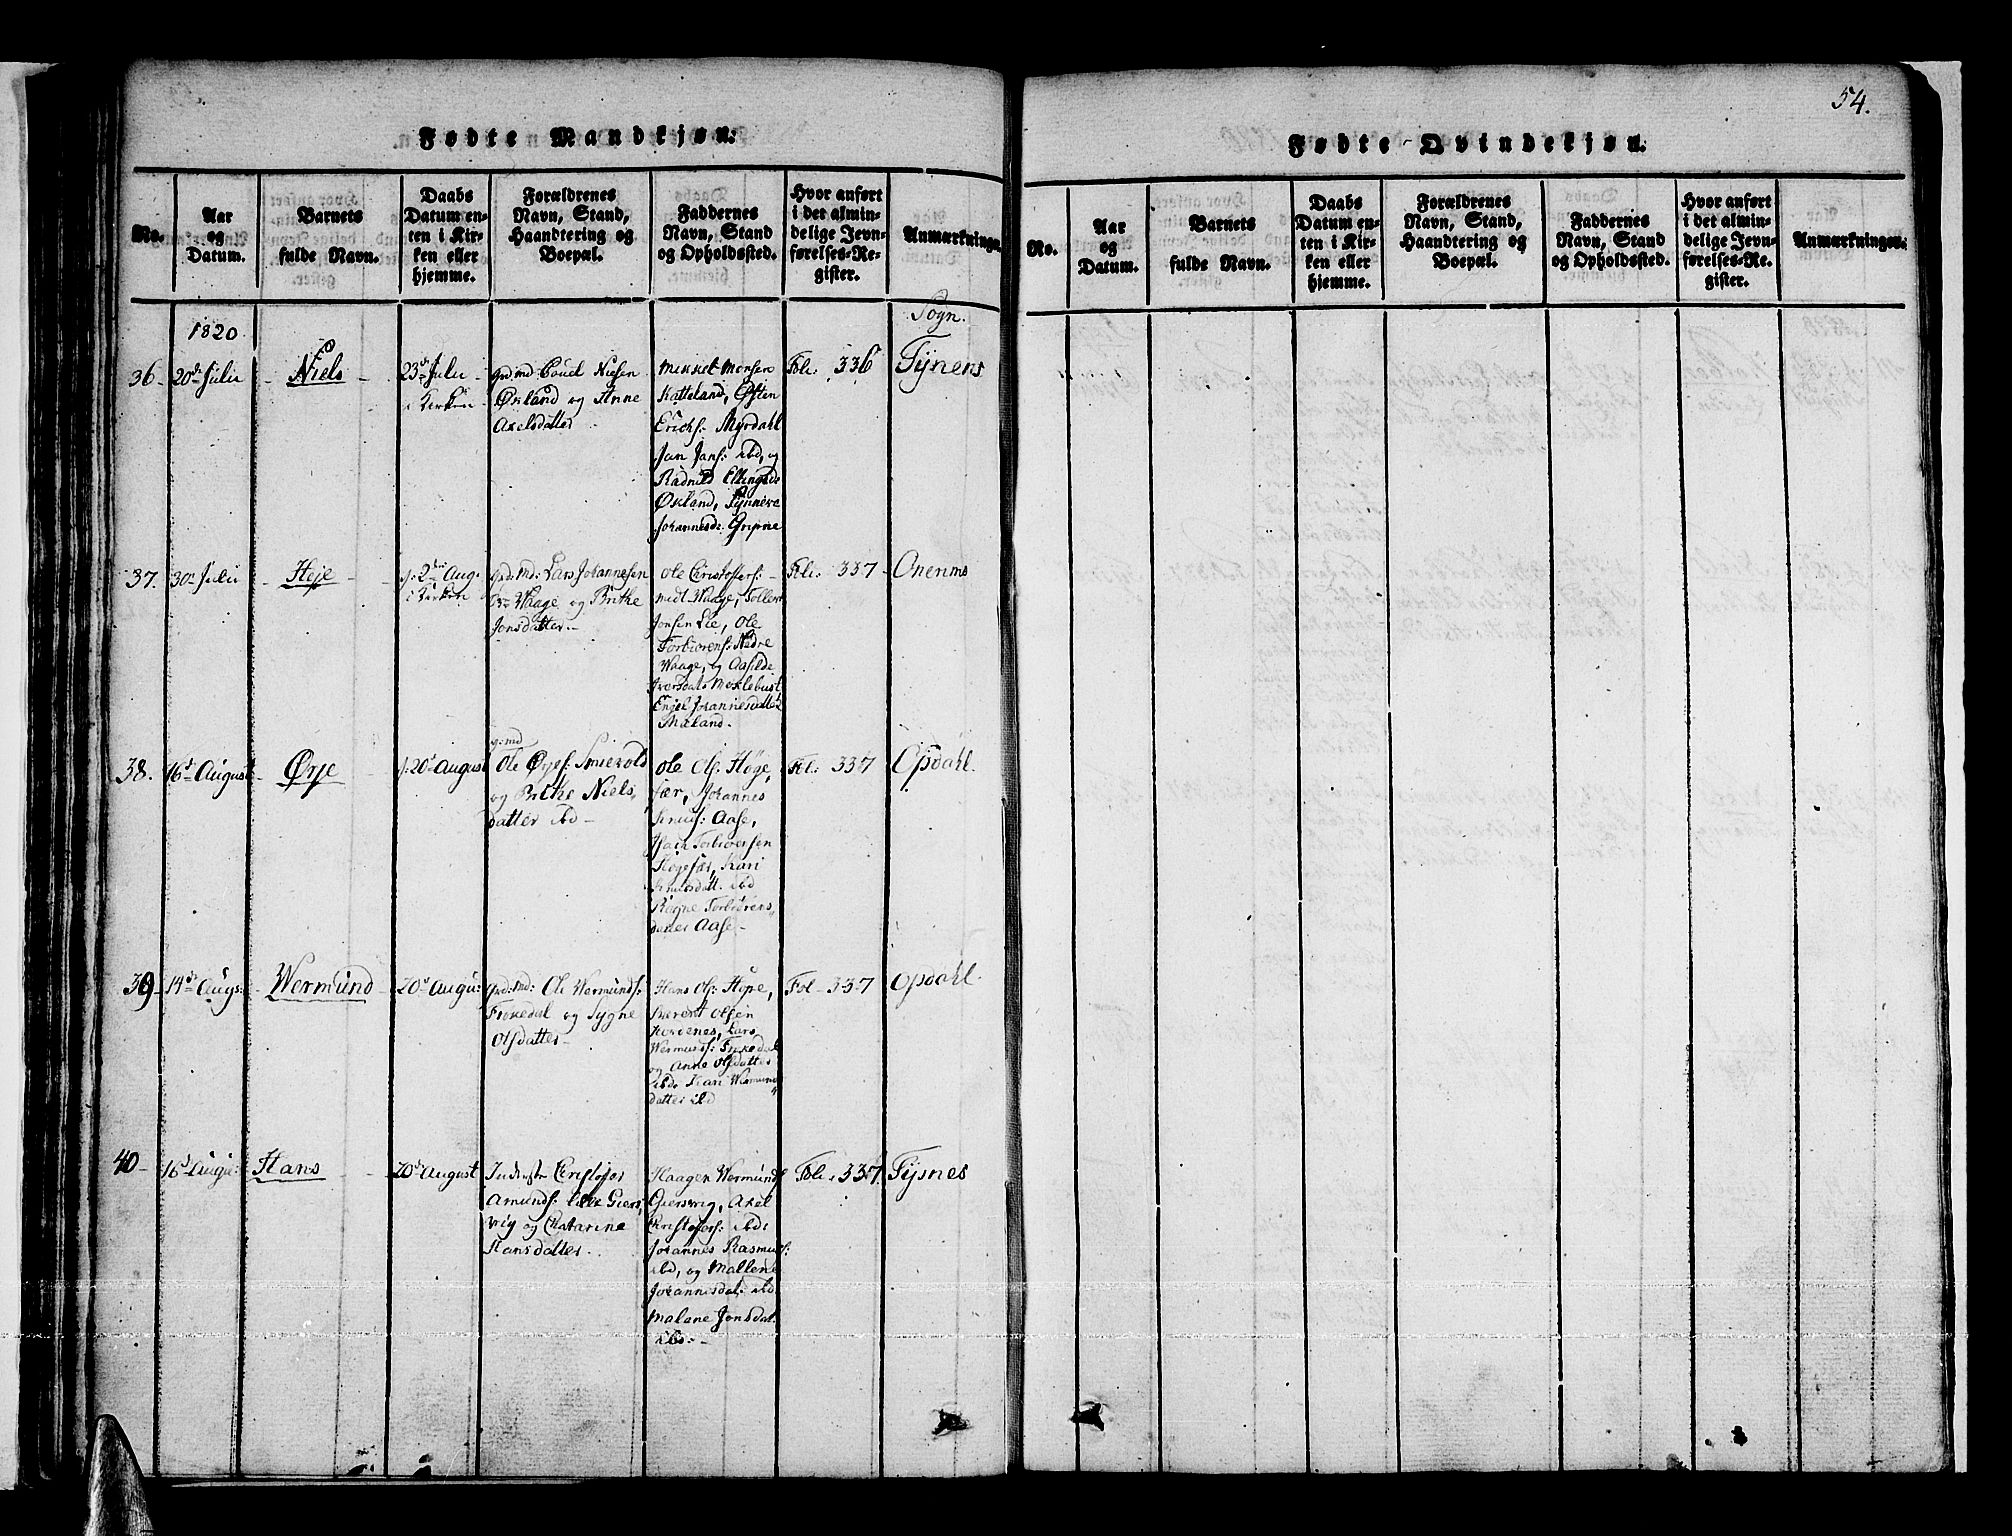 54.
Fødte Mandkjøn.
No.
Aar
og
Datum.
Barnets
fulde Navn.
Daabs
Datum en-
ten i Kir-
ken eller
hjemme.
Forældrenes
Navn, Stand,
Haandtering og
Boepæl.
Faddernes
Navn, Stand
og Opholdssted.
Hvor anført
i det almin-
delige Jevn-
førelses-Re-
gister.
Anmærkninger.
1820
Sogn.
36
20de Julii
Niels
23de Julii
i Kirken
grd.md Poüel Nielsen
Øxland og Anne
Axelsdatter
Mikkel Monsen
Katteland, Østen
Ericks: Myrdahl
Jan Jans: ibd, og
Radnild Ellingsd
Øxland, Synneve
Johannesd: Gripne
Fol: 336
Tysnes
37.
30 Julii
Heje
2den Aug.
i Kirken
grd:md: Lars Johannesen
Waage og Brithe
Jonsdatter
Ole Christoffers:
midt Waage, Tollef
Jonsen Lie, Ole
Torbiørens: Nedre
Waage, og Aasilde
Iversdat: Moklebust
Engel Johannesdatter
Maland.
Fol: 337
Onerms
38.
16d August
Ørje
20d August
g:md
Ole Ørjes: Smievold
og Brithe Niels,
datter ibd
Ole Ols: Høge,
fiær, Johannes
Knuds: Aase,
Isach Torbiørnsen
Høgefiær, Kari
Knudsdatt. ibd
Rogne Torbiørens,
datter Aase
Fol: 337
Opdahl.
39
14de Augs:
Wermünd
20d Augu:
grd:md: Ole Wermunds:
Frøkedal og Sygne
Olsdatter
Hans Ols: Hope,
Bærent Olsen
Hovdenes, Lars
Wermunds: Frøkedal
og Anne Olsdatter
ibd, Kari Wermunds
datter ibd
Fol 337
Opdahl.
40
16d Augu:
Hans
20d August
Inderster Christofer
Amunds: lille Giers,
vig og Catarine
Hansdatter
Haagen Wermünds:
Giersvig, Axel
Christofers: ibd:
Johannes Rasmus:
ibd, og Mallene
Johannesdat: ibd
Malene Jonsdat.
ibd:
Fol: 337
Tysnes
Fødte Qvindekjøn.
No.
Aar
og
Datum.
Barnets
fulde Navn.
Daabs
Datum en-
ten i Kir-
ken eller
hjemme.
Forældrenes
Navn, Stand,
Haandtering og
Boepæl.
Faddernes
Navn, Stand
og Opholdssted.
Hvor anført
i det almin-
delige Jevn-
førelses-Re-
gister.
Anmærkninger.